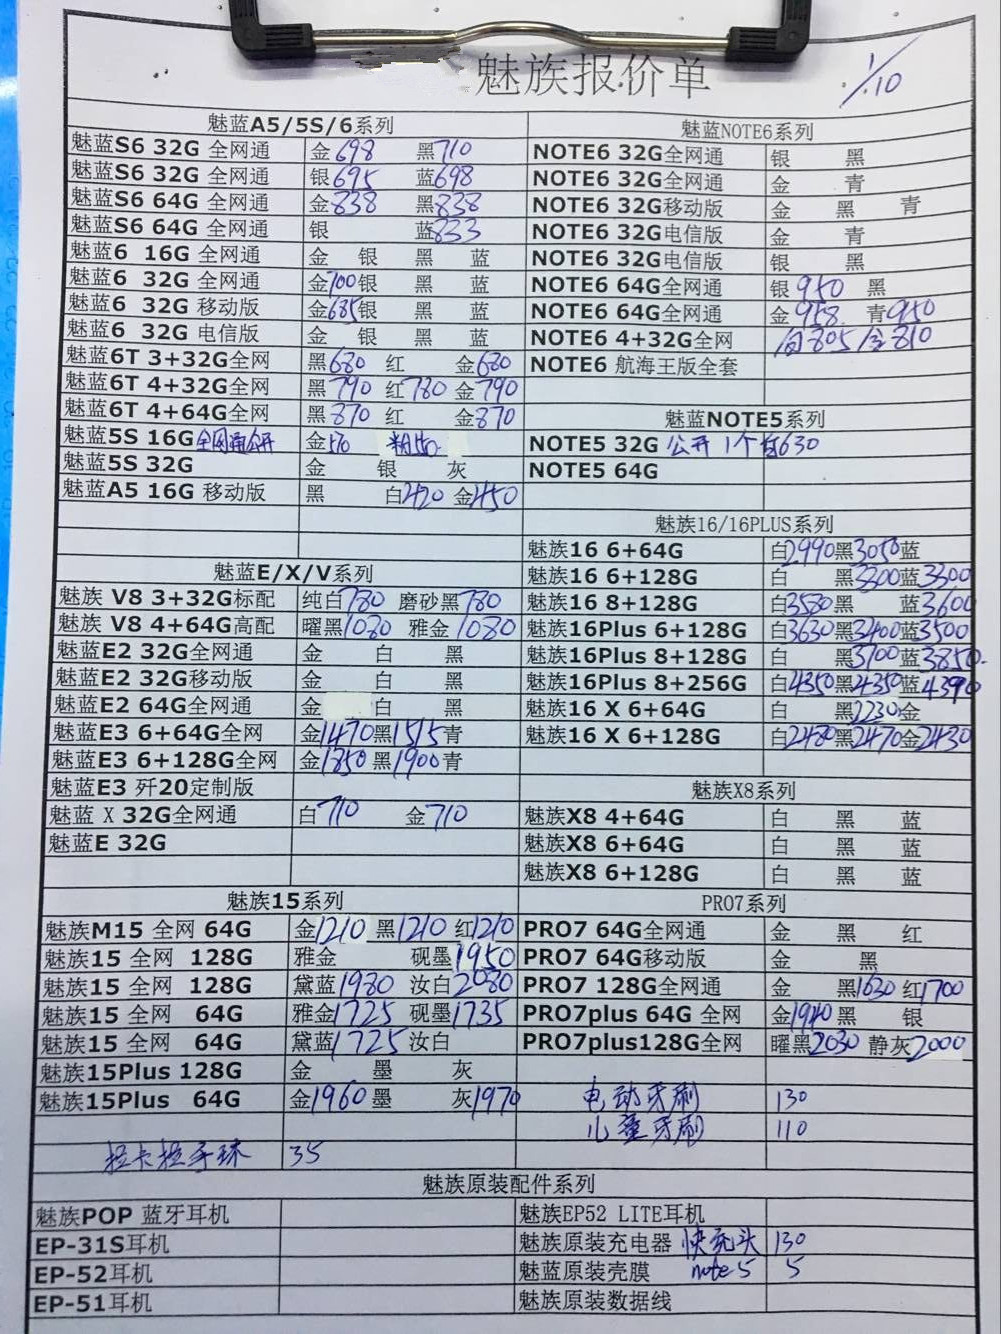 魅族报价单
1/10
魅蓝A5/5S/6系列
魅蓝S6 32G 全网通 金698 黑710
魅蓝S6 32G 全网通 银695 蓝698
魅蓝S6 64G 全网通 金838 黑838
魅蓝S6 64G 全网通 银 蓝833
魅蓝6 16G 全网通 金 银 黑 蓝
魅蓝6 32G 全网通 金700银 黑 蓝
魅蓝6 32G 移动版 金685银 黑 蓝
魅蓝6 32G 电信版 金 银 黑 蓝
魅蓝6T 3+32G全网 黑680 红 金680
魅蓝6T 4+32G全网 黑790 红780 金790
魅蓝6T 4+64G全网 黑870 红 金870
魅蓝5S 16G全网通公开 金570 粉
魅蓝5S 32G 金 银 灰
魅蓝A5 16G 移动版 黑 白420 金450
魅蓝E/X/V系列
魅族 V8 3+32G标配 纯白780 磨砂黑780
魅族 V8 4+64G高配 曜黑1080 雅金1080
魅蓝E2 32G全网通 金 白 黑
魅蓝E2 32G移动版 金 白 黑
魅蓝E2 64G全网通 金 白 黑
魅蓝E3 6+64G全网 金1470黑1515青
魅蓝E3 6+128G全网 金1850黑1900青
魅蓝E3 歼20定制版
魅蓝 X 32G全网通 白710 金710
魅蓝E 32G
魅族15系列
魅族M15 全网 64G 金1210 黑1210 红1210
魅族15 全网 128G 雅金 砚墨1950
魅族15 全网 128G 黛蓝1980 汝白2080
魅族15 全网 64G 雅金1725 砚墨1735
魅族15 全网 64G 黛蓝1725 汝白
魅族15Plus 128G 金 墨 灰
魅族15Plus 64G 金1960墨 灰1970
拉卡拉手环 35
魅蓝NOTE6系列
NOTE6 32G全网通 银 黑
NOTE6 32G全网通 金 青
NOTE6 32G移动版 金 黑 青
NOTE6 32G电信版 金 青
NOTE6 32G电信版 银 黑
NOTE6 64G全网通 银950 黑
NOTE6 64G全网通 金958 青950
NOTE6 4+32G全网 白805/金810
NOTE6 航海王版全套
魅蓝NOTE5系列
NOTE5 32G 公开1个白630
NOTE5 64G
魅族16/16PLUS系列
魅族16 6+64G 白2990黑3050蓝
魅族16 6+128G 白 黑3300蓝3300
魅族16 8+128G 白3580黑 蓝3600
魅族16Plus 6+128G 白3630黑3400蓝3500
魅族16Plus 8+128G 白 黑3700蓝3850
魅族16Plus 8+256G 白4350黑4350蓝4390
魅族16 X 6+64G 白 黑2230金
魅族16 X 6+128G 白2480黑2470金2430
魅族X8系列
魅族X8 4+64G 白 黑 蓝
魅族X8 6+64G 白 黑 蓝
魅族X8 6+128G 白 黑 蓝
PRO7系列
PRO7 64G全网通 金 黑 红
PRO7 64G移动版 金 黑
PRO7 128G全网通 金 黑1630 红1700
PRO7plus 64G 全网 金1940黑 银
PRO7plus128G全网 曜黑2030 静灰2000
电动牙刷 130
儿童牙刷 110
魅族原装配件系列
魅族POP 蓝牙耳机
EP-31S耳机
EP-52耳机
EP-51耳机
魅族EP52 LITE耳机
魅族原装充电器 快充头 130
魅蓝原装壳膜 note5 5
魅族原装数据线